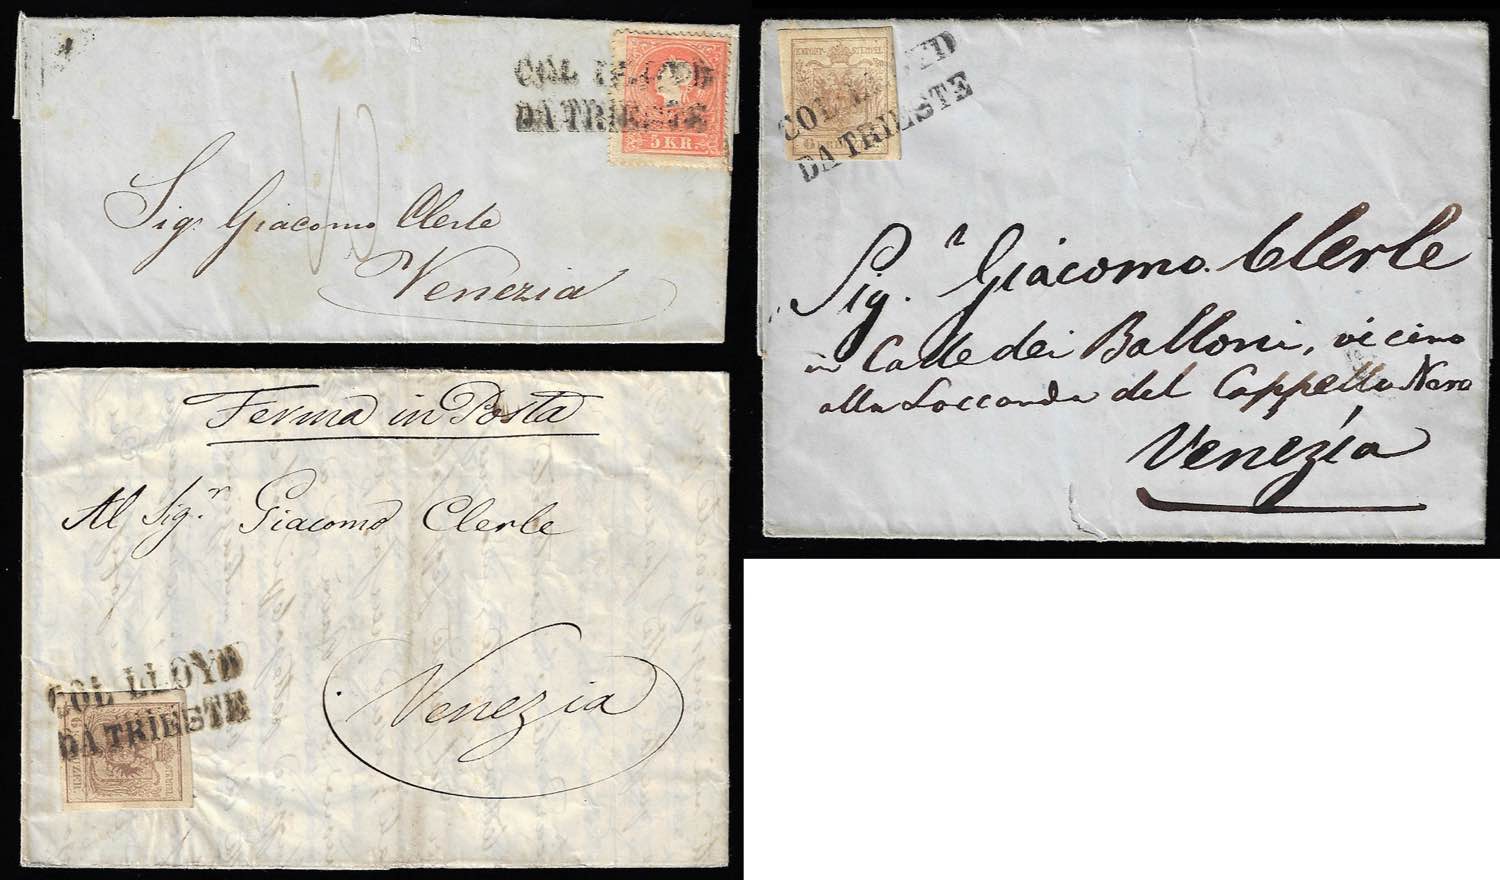 COL LLOYD
DA TRIESTE
5 KR
Sigr Giacomo Clerle
Venezia
COL LLOYD
DA TRIESTE
KKPOST-STEMPEL
6
Sig.r Giacomo Clerle
in Calle dei Balloni, vicino
alla Loccanda del Cappello Nero
Venezia
Ferma in Posta
Al Sig.r Giacomo Clerle
Venezia
COL LLOYD
DA TRIESTE